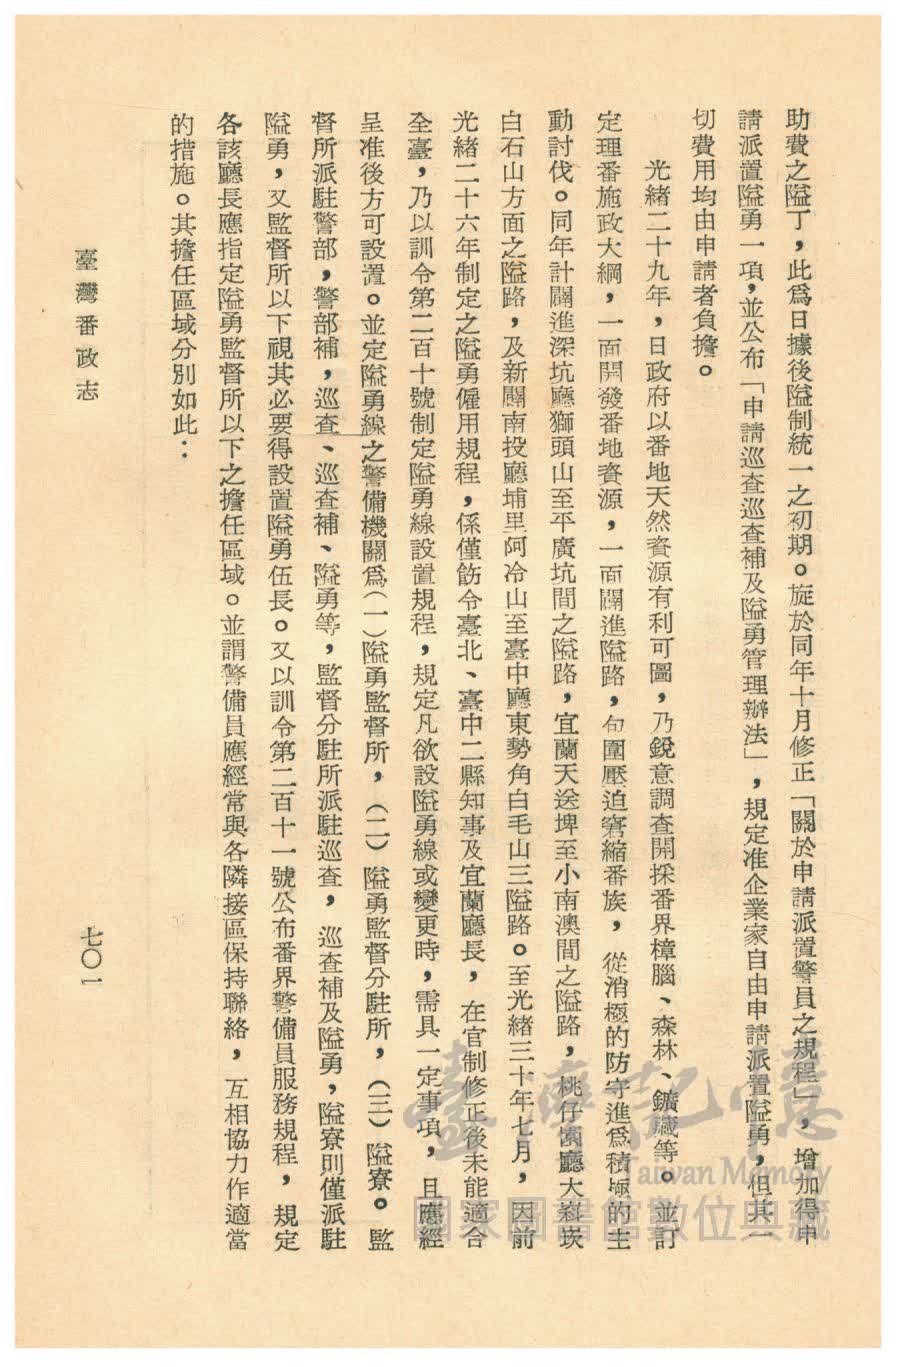 助費之隘丁，此為日據後隘制統一之初期。旋於同年十月修正「關於申請派置警員之規程」，增加得申
請派置隘勇一項，並公布「申請巡查巡查補及隘勇管理辦法」，規定准企業家自由申請派置隘勇，但其一
切費用均由申請者負擔。
光緒二十九年，日政府以番地天然資源有利可圖，乃銳意調查開採番界樟腦、森林、鑛藏等。並訂
定理番施政大綱，一面開發番地資源，一面闢進隘路，包圍壓迫窘縮番族，從消極的防守進為積極的主
動討伐。同年計闢進深坑廳獅頭山至平廣坑間之隘路，宜蘭天送埤至小南澳間之隘路，桃仔園廳大嵙崁
白石山方面之隘路，及新闢南投廳埔里阿冷山至臺中廳東勢角白毛山三隘路。至光緒三十年七月，因前
光緒二十六年制定之隘勇僱用規程，係僅飭令臺北、臺中二縣知事及宜蘭廳長，在官制修正後未能適合
全臺，乃以訓令第二百十號制定隘勇線設置規程，規定凡欲設隘勇線或變更時，需具一定事項，且應經
呈准後方可設置。並定隘勇線之警備機關為（一）隘勇監督所，（二）隘勇監督分駐所，（三）隘寮。監
督所派駐警部，警部補，巡查、巡查補、隘勇等，監督分駐所派駐巡查，巡查補及隘勇，隘寮則僅派駐
隘勇，又監督所以下視其必要得設置隘勇伍長。又以訓令第二百十一號公布番界警備員服務規程，規定
各該廳長應指定隘勇監督所以下之擔任區域。並謂警備員應經常與各隣接區保持聯絡，互相協力作適當
的措施。其擔任區域分別如此：
臺灣番政志
七〇一
臺灣記憶
Taiwan Memory
國家圖書館數位典藏